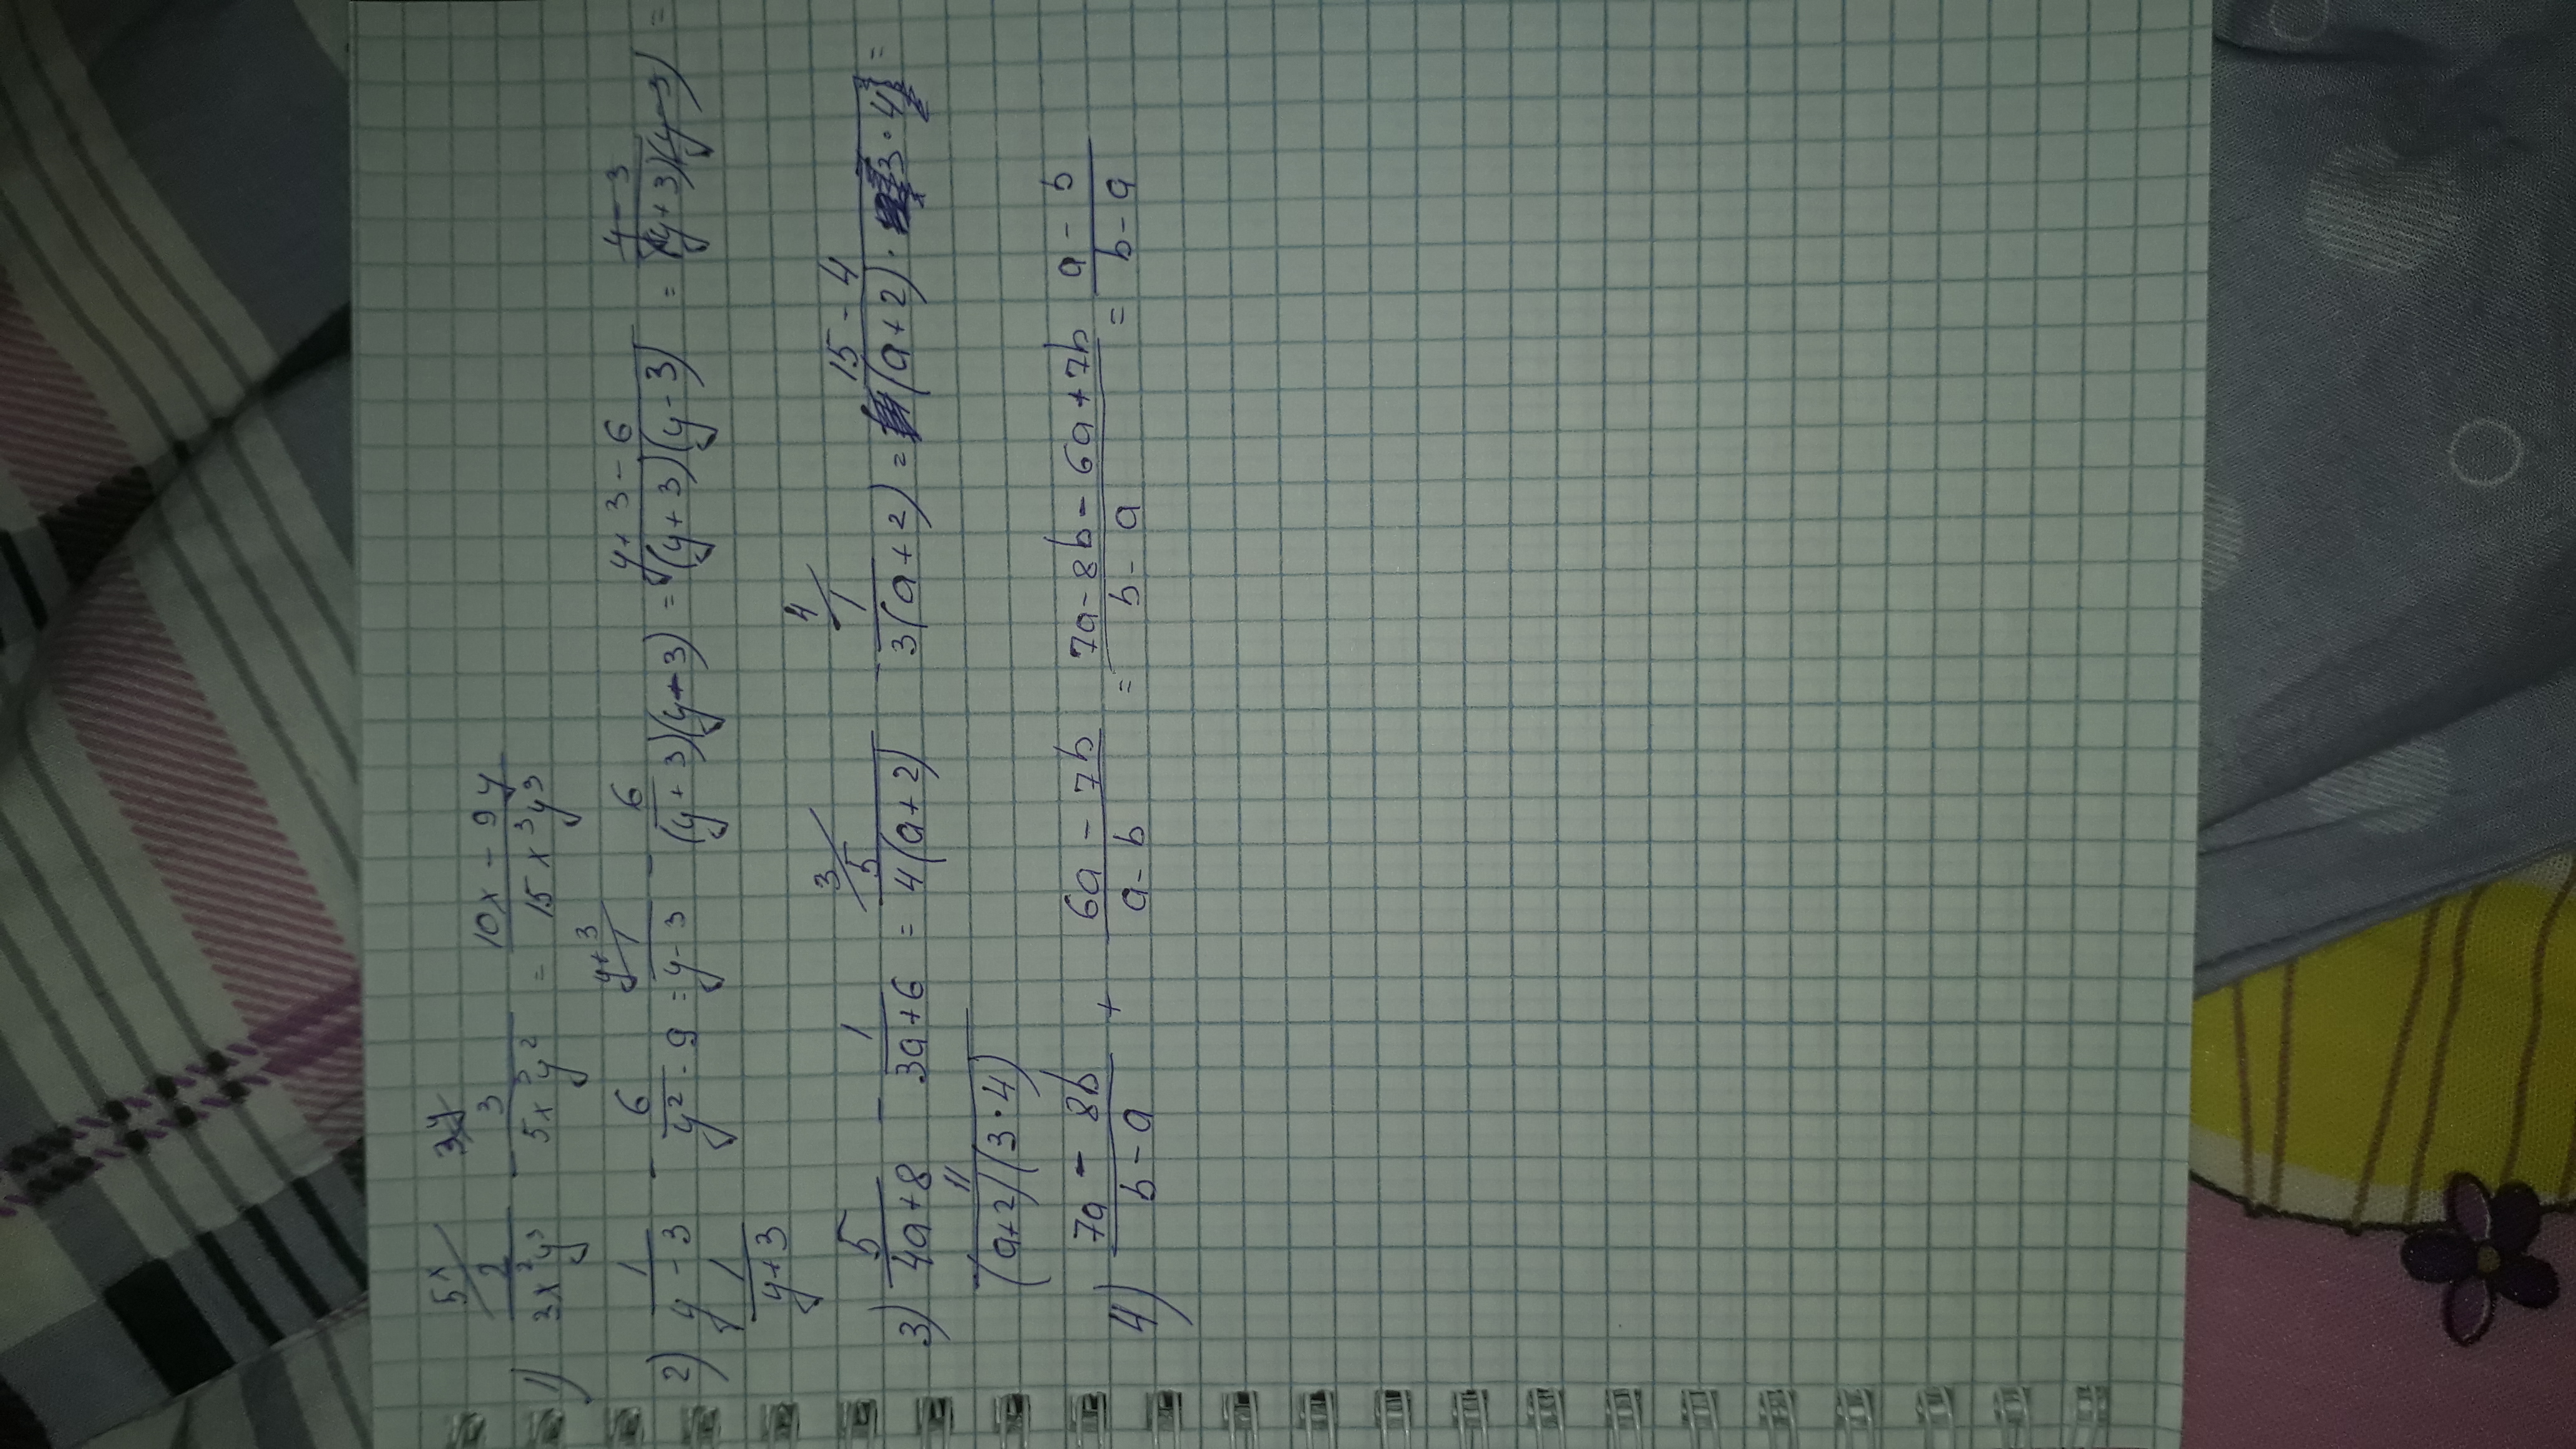 5x 3y
1) 2/3x²y³ - 3/5x³y² = (10x - 9y)/15x³y³
y+3
2) 1/(y - 3) - 6/(y² - 9) = 1/(y - 3) - 6/((y + 3)(y - 3)) = (y + 3 - 6)/((y + 3)(y - 3)) = (y - 3)/((y + 3)(y - 3)) =
1/(y + 3)
3 4
3) 5/(4a + 8) - 1/(3a + 6) = 5/(4(a + 2)) - 1/(3(a + 2)) = (15 - 4)/((a + 2) · 3 · 4) =
11/((a+2)(3 · 4))
4) (7a - 8b)/(b - a) + (6a - 7b)/(a - b) = (7a - 8b - 6a + 7b)/(b - a) = (a - b)/(b - a)